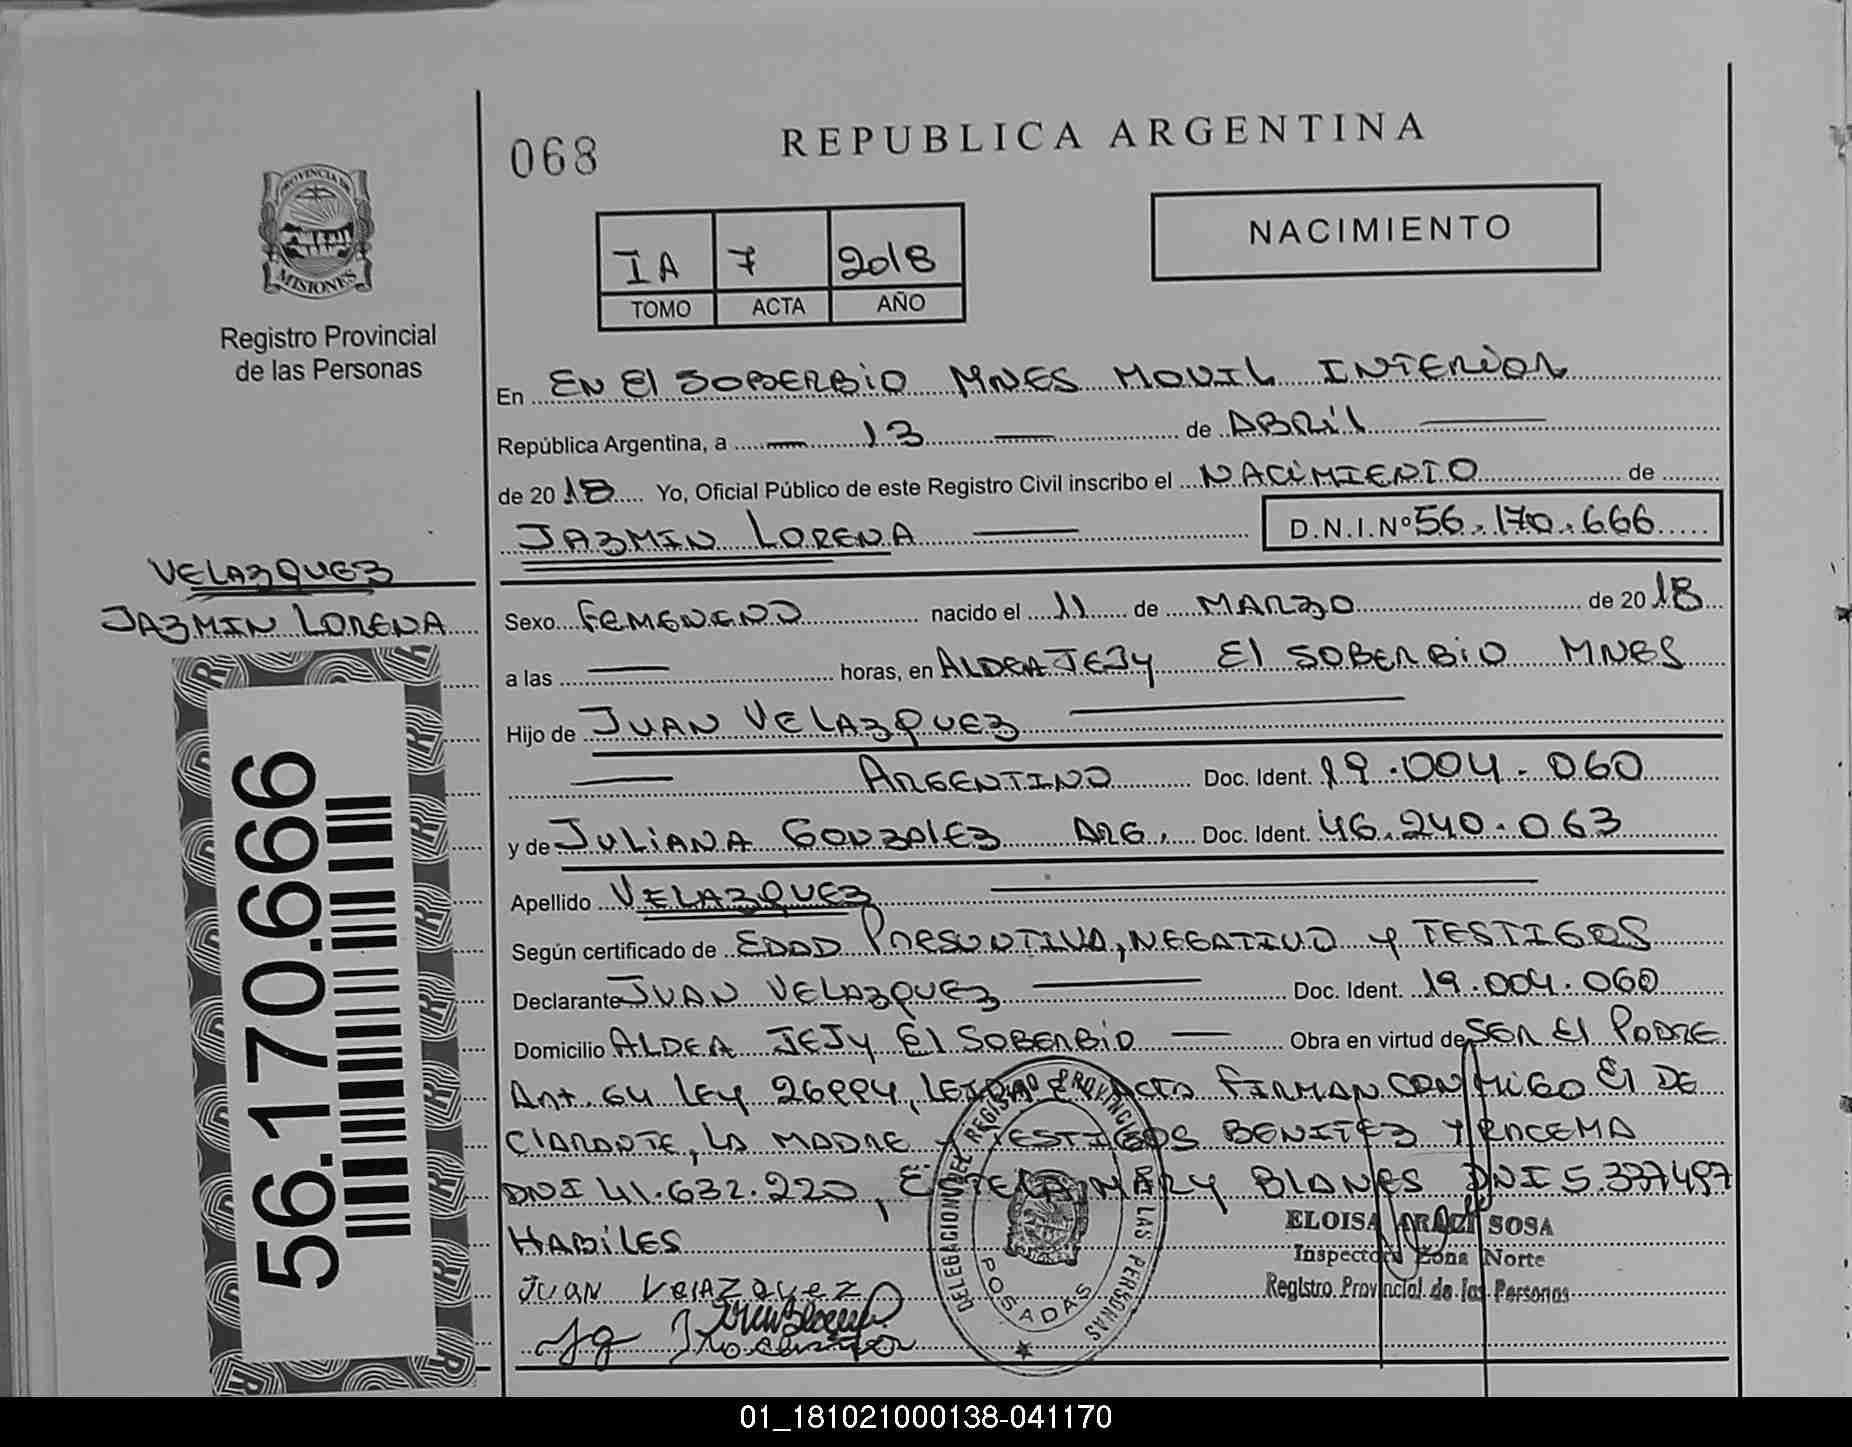 068
REPUBLICA ARGENTINA
NACIMIENTO
IA 7 2018
TOMO ACTA AÑO
PROVINCIA DE
MISIONES
Registro Provincial
de las Personas
En EN El SOBERBIO MNES MOVIL INTERIOR
República Argentina, a 13 de ABRIL
de 2018 Yo, Oficial Público de este Registro Civil inscribo el NACIMIENTO de
JAZMIN LORENA D.N.I.Nº 56.170.666
VELAZQUEZ
JAZMIN LORENA
56.170.666
Sexo FEMENENO nacido el 11 de MARZO de 2018
a las horas, en ALDEA JEJY El SOBERBIO MNES
Hijo de JUAN VELAZQUEZ
ARGENTINO Doc. Ident. 19.004.060
y de JULIANA GONZALEZ ARG. Doc. Ident. 46.240.063
Apellido VELAZQUEZ
Según certificado de EDAD PRESUNTIVA, NEGATIVO Y TESTIGOS
Declarante JUAN VELAZQUEZ Doc. Ident. 19.004.060
Domicilio ALDEA JEJY El SOBERBIO Obra en virtud de SER El PADRE
Art. 64 LEY 26994, LEIDA El ACTA FIRMAN CONMIGO El DE
CLARANTE, LA MADRE Y TESTIGOS BENITEZ
DNI 41.632.220, MARY BLANES DNI 5.397497
HABILES
JUAN VELAZQUEZ
DELEGACION DEL REGISTRO PROVINCIAL DE LAS PERSONAS
POSADAS
ELOISA ARACI SOSA
Inspectora Zona Norte
Registro Provincial de las Personas
01_181021000138-041170